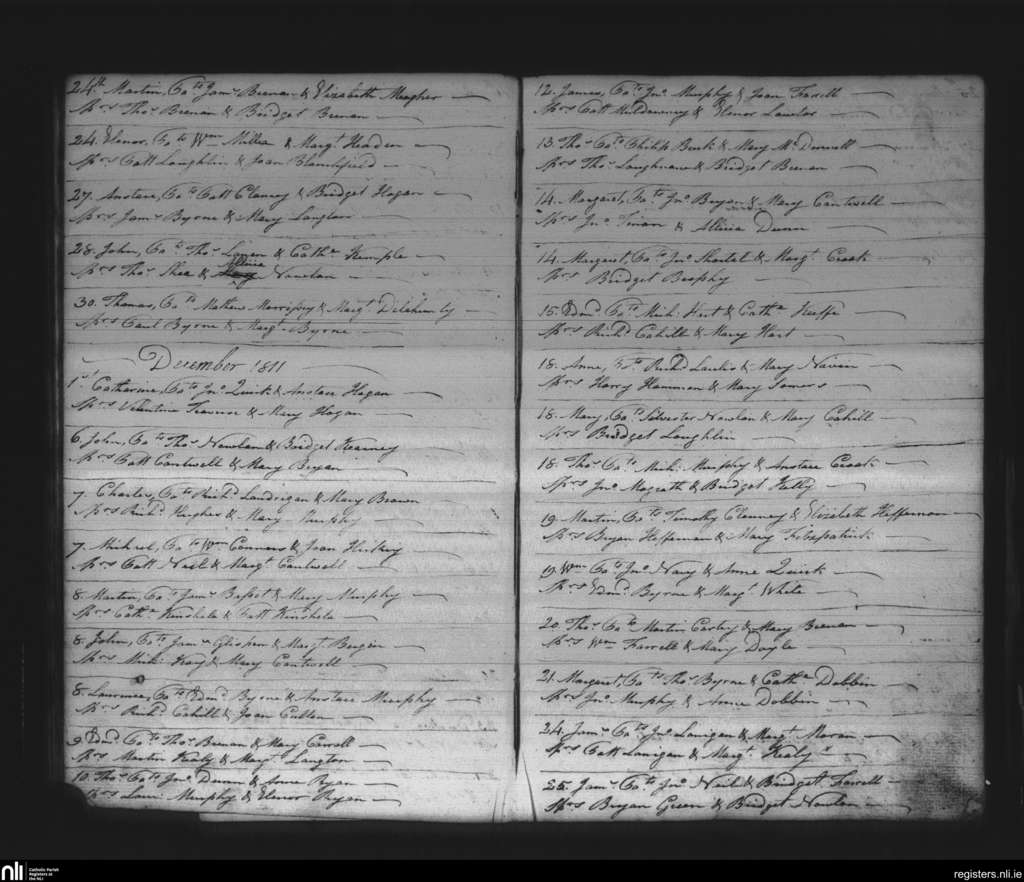 24th Martin, Co to Jams Brenan & Elizabeth Meagher
Sprs Thos Brenan & Bridget Brenan
24. Elenor, Co to Wm Millea & Margt Headen
Sprs Catt Loughlin & Joan Blanchfield
27. Anstace, Co to Catt Clancy & Bridget Hogan
Sprs Jams Byrne & Mary Langton
28. John, Co to Thos & Catha Kemple
Allicia
Sprs Thos Shea & Nowlan
30. Thomas, Co to Mathew & Margt Delahunty
Sprs Paul Byrne & Margt Byrne
December 1811
1st Catharine, Co to Jno Quirk & Anstace Hagan
Sprs Valentine & Mary Hagan
6. John, Co to Thos Nowlan & Bridget Kearney
Sprs Catt Cantwell & Mary Bryan
7. Charles, Co to Richd Landrigan & Mary Brawn
Sprs Richd Hughes & Mary Murphy
7. Michael, Co to Wm Connors & Joan Hickey
Sprs Catt Neil & Margt Cantwell
8. Martin, Co to Jams & Mary Murphy
Sprs Catha Kinshela & Patt Kinshela
8. John, Co to Jams & Margt Bergin
Sprs Mich: & Mary Cantwell
8. Laurence, Co to Edmd Byrne & Anstace Murphy
Sprs Richd Cahill & Joan Cullen
9. Edmd Co to Thos Brenan & Mary Carroll
Sprs Martin Kealy & Margt Langton
10. Thos Co to Jno Dunn & Anne Ryan
Sprs Laur: Murphy & Elenor Ryan
12. James, Co to Jno Murphy & Joan Farrell
Sprs Catt Muldowney & Elenor Lawlor
13. Thos Co to Philip Burk & Mary McDonnell
Sprs Thos Loughnane & Bridget Brenan
14. Margaret, Co to Jno Bryan & Mary Cantwell
Sprs Jno Tinan & Allicia Dunn
14. Margaret, Co to Jno Shortel & Margt Croak
Sprs Bridget Brophy
15. Edmd Co to Mich: Hart & Catha Keeffe
Sprs Richd Cahill & Mary Hart
18. Anne, Co to Richd & Mary
Sprs Harry & Mary Somers
18. Mary, Co to Silvester Nowlan & Mary Cahill
Sprs Bridget Loughlin
18. Thos Co to Mich: Murphy & Anstace Croak
Sprs Jno Magrath & Bridget Kelly
19. Martin, Co to Timothy Clanney & Elizabeth Heffernan
Sprs Bryan Heffernan & Mary Fitzpatrick
19. Wm Co to Jno Nary & Anne Quirk
Sprs Edmd Byrne & Margt White
20. Thos Co to Martin & Mary Brenan
Sprs Wm Farrell & Mary Doyle
21. Margaret, Co to Thos Byrne & Catha Dobbin
Sprs Jno Murphy & Anne Dobbin
24. Jams Co to Jno Lanigan & Margt Moran
Sprs Catt Lanigan & Margt Kealy
25. Jams Co to Jno Neil & Bridget Farrell
Sprs Bryan Green & Bridget Nowlan
nli
Catholic Parish
Registers at
the NLI
registers.nli.ie